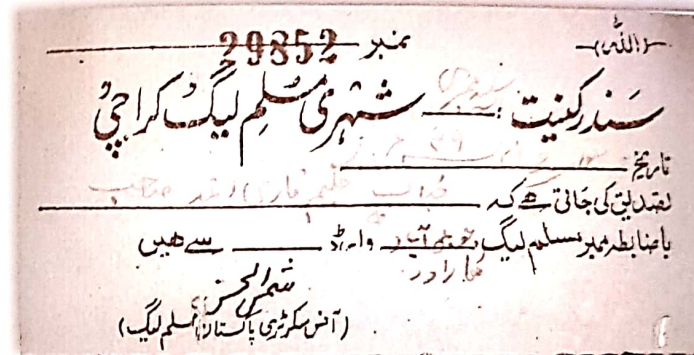 (اللہ)
نمبر 29852
سند رکنیت: شہری مسلم لیگ کراچی
تاریخ
تصدیق کی جاتی ھے کہ جناب حکیم قاری احمد صاحب
باضابطہ ممبر مسلم لیگ وارڈ سے ھیں
شمس الحسن
(آفس سکرٹری پاکستان مسلم لیگ)